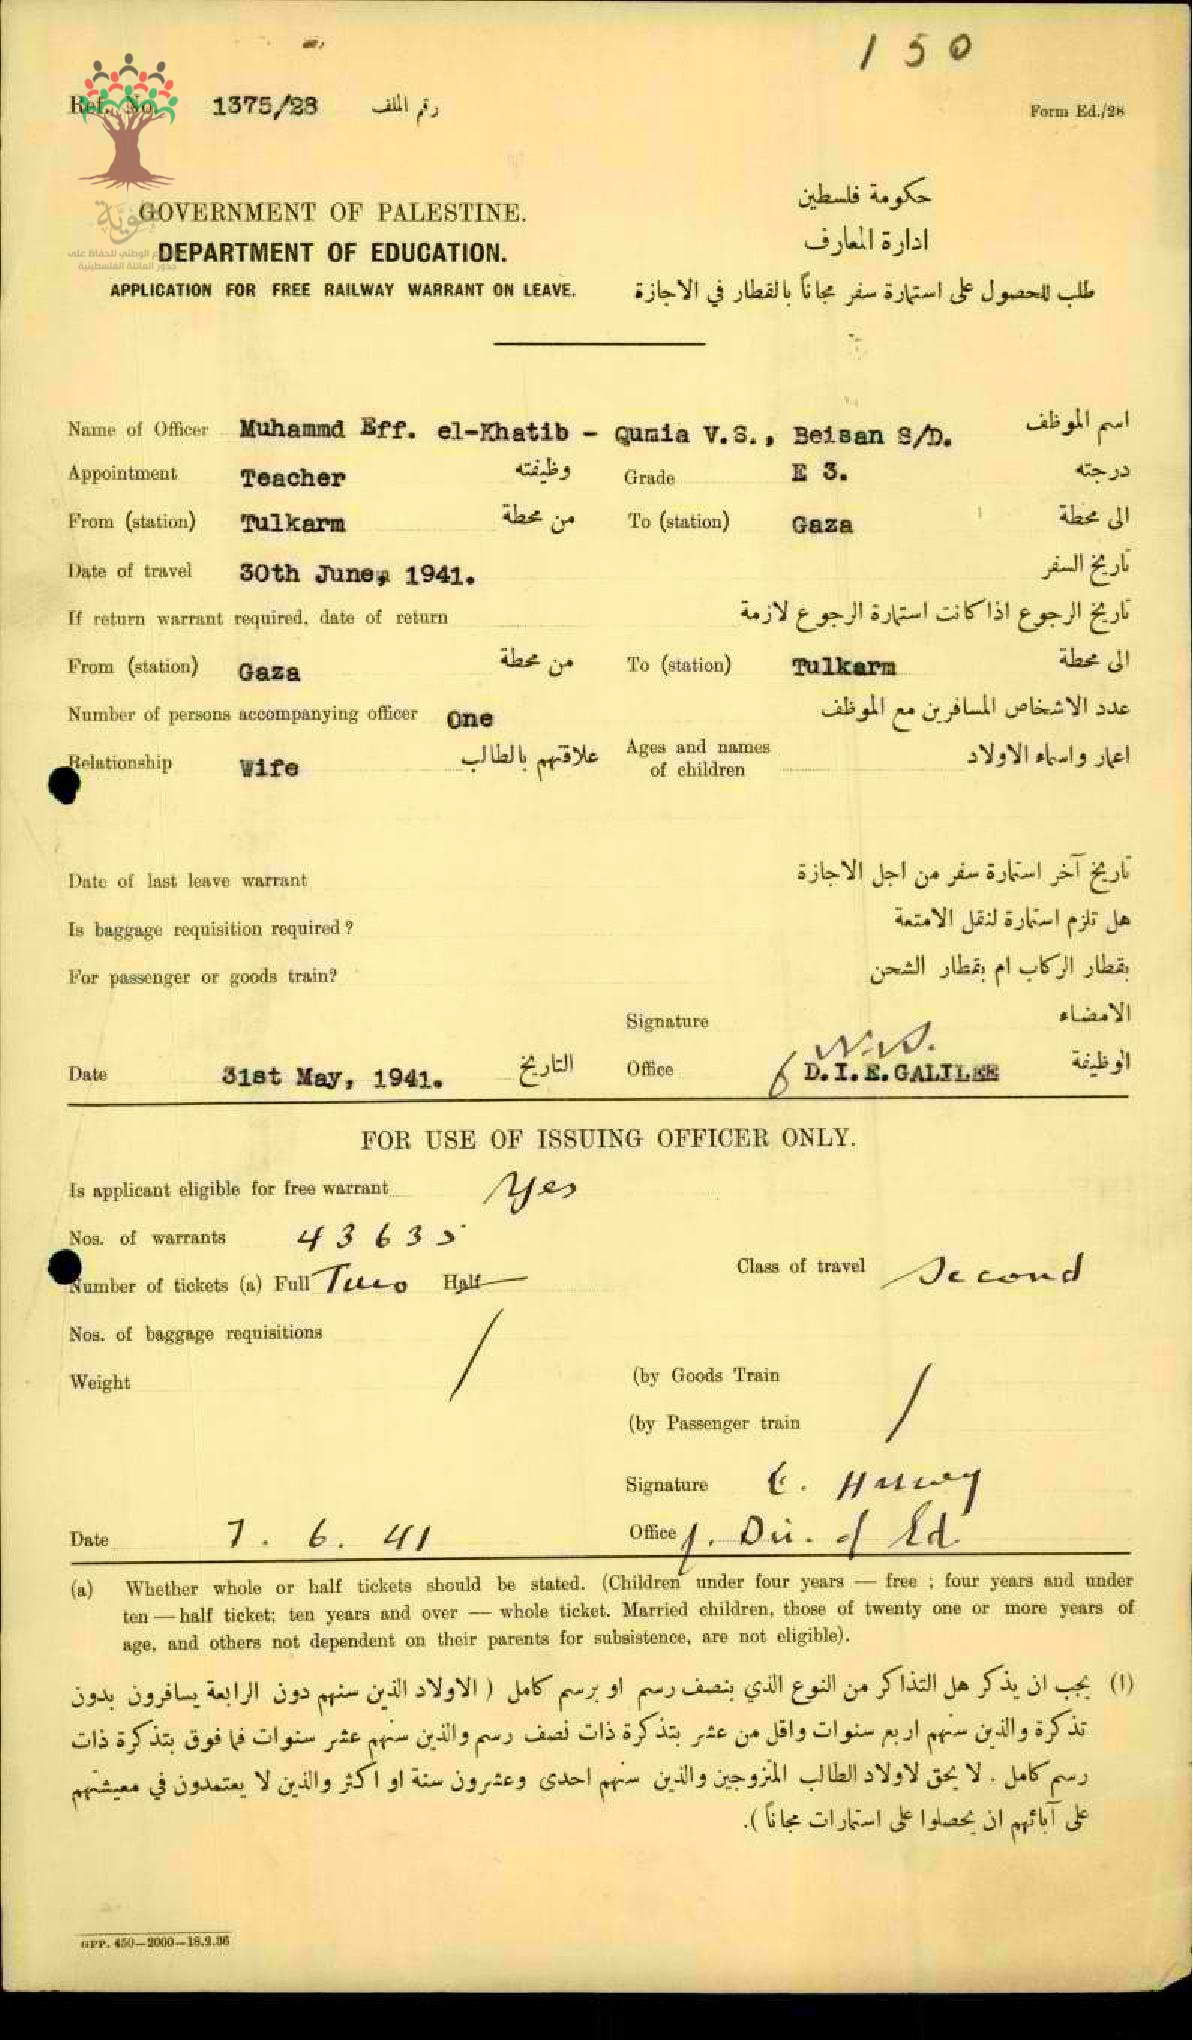 150
Ref. No. 1375/28 رقم الملف
Form Ed./28
هوية
الوطني للحفاظ على
جذور العائلة الفلسطينية
GOVERNMENT OF PALESTINE.
حكومة فلسطين
DEPARTMENT OF EDUCATION.
ادارة المعارف
APPLICATION FOR FREE RAILWAY WARRANT ON LEAVE.
طلب للحصول على استمارة سفر مجاناً بالقطار في الاجازة
Name of Officer Muhammd Eff. el-Khatib - Qumia V.S., Beisan S/D. اسم الموظف
Appointment Teacher وظيفته Grade E 3. درجته
From (station) Tulkarm من محطة To (station) Gaza الى محطة
Date of travel 30th June, 1941. تاريخ السفر
If return warrant required, date of return تاريخ الرجوع اذا كانت استمارة الرجوع لازمة
From (station) Gaza من محطة To (station) Tulkarm الى محطة
Number of persons accompanying officer One عدد الاشخاص المسافرين مع الموظف
Relationship Wife علاقتهم بالطالب Ages and names of children اعمار واسماء الاولاد
Date of last leave warrant تاريخ آخر استمارة سفر من اجل الاجازة
Is baggage requisition required? هل تلزم استمارة لنقل الامتعة
For passenger or goods train? بقطار الركاب ام بقطار الشحن
Signature الامضاء
Date 31st May, 1941. التاريخ Office D.I.E.GALILEE الوظيفة
FOR USE OF ISSUING OFFICER ONLY.
Is applicant eligible for free warrant Yes
Nos. of warrants 43635
Class of travel Second
Number of tickets (a) Full Two Half —
Nos. of baggage requisitions /
Weight
(by Goods Train /
(by Passenger train
Signature E. Harvey
Date 7. 6. 41 Office f. Dir. of Ed.
(a) Whether whole or half tickets should be stated. (Children under four years — free ; four years and under
ten — half ticket; ten years and over — whole ticket. Married children, those of twenty one or more years of
age, and others not dependent on their parents for subsistence, are not eligible).
(ا) يجب ان يذكر هل التذاكر من النوع الذي بنصف رسم او برسم كامل ( الاولاد الذين سنهم دون الرابعة يسافرون بدون
تذكرة والذين سنهم اربع سنوات واقل من عشر بتذكرة ذات نصف رسم والذين سنهم عشر سنوات فما فوق بتذكرة ذات
رسم كامل . لا يحق لاولاد الطالب المتزوجين والذين سنهم احدى وعشرون سنة او اكثر والذين لا يعتمدون في معيشتهم
على آبائهم ان يحصلوا على استمارات مجاناً ).
GPP. 450—2000—18.2.36